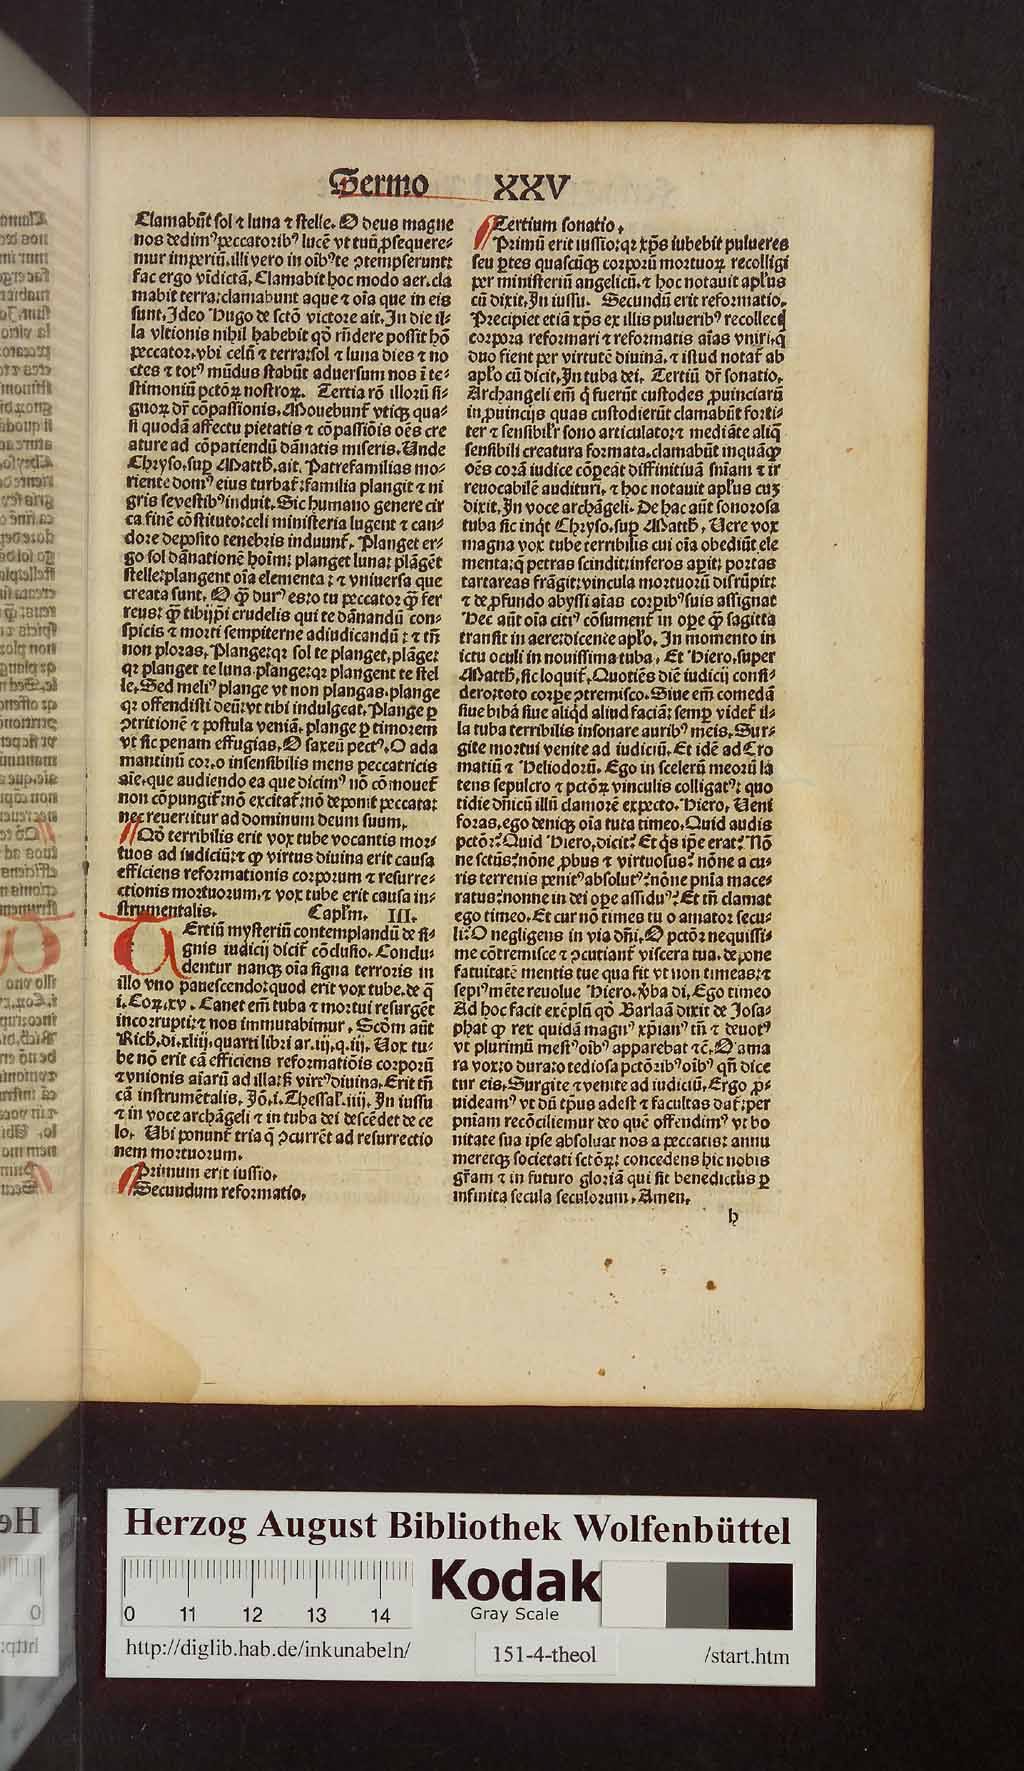 Sermo XXV
Clamabūt sol ⁊ luna ⁊ stelle. O deus magne
nos dedimꝰ peccatoribꝰ lucē vt tuū ꝓsequere⸗
mur imperiū, illi vero in oībꝰ te ꝯtempserunt:
fac ergo vīdictā. Clamabit hoc modo aer. cla
mabit terra: clamabunt aque ⁊ oīa que in eis
sunt. Ideo Hugo de sctō victore ait. In die il⸗
la vltionis nihil habebit qd̄ rn̄dere possit hō
peccator. vbi celū ⁊ terra: sol ⁊ luna dies ⁊ no
ctes ⁊ totꝰ mūdus stabūt aduersum nos ī te⸗
stimoniū pctōꝝ nostroꝝ. Tertia rō illorū si⸗
gnoꝝ dr̄ cōpassionis. Mouebunt᷑ vtiqꝫ qua⸗
si quodā affectu pietatis ⁊ cōpassiōis oēs cre
ature ad cōpatiendū dānatis miseris. Unde
Chryso. suꝑ Matth. ait. Patrefamilias mo⸗
riente domꝰ eius turbat᷑: familia plangit ⁊ ni
gris se vestibꝰ induit. Sic humano genere cir
ca finē cōstituto: celi ministeria lugent ⁊ can⸗
dore deposito tenebris induunt᷑. Planget er⸗
go sol dānationē hoīm: planget luna: plāgēt
stelle: plangent oīa elementa: ⁊ vniuersa que
creata sunt. O ꝙ̄ durꝰ es: o tu peccator ꝙ̄ fer
reus: ꝙ̄ tibijp̄i crudelis qui te dānandū con⸗
spicis ⁊ morti sempiterne adiudicandū: ⁊ tn̄
non ploras. Plange: qꝛ sol te planget, plāge:
qꝛ planget te luna. plange: qꝛ plangent te stel
le. Sed meliꝰ plange vt non plangas. plange
qꝛ offendisti deū: vt tibi indulgeat. Plange ꝑ
ꝯtritionē ⁊ postula veniā. plange ꝑ timorem
vt sic penam effugias. O saxeū pectꝰ. O ada
mantinū cor. o insensibilis mens peccatricis
aīe. que audiendo ea que dicimꝰ nō cōmouet᷑
non cōpungit᷑: nō excitat᷑: nō deponit peccata:
nec reuertitur ad dominum deum suum.
Qd̄ terribilis erit vox tube vocantis mor⸗
tuos ad iudiciū: ⁊ ꝙ virtus diuina erit causa
efficiens reformationis corporum ⁊ resurre⸗
ctionis mortuorum. ⁊ vox tube erit causa in⸗
strumentalis. Caplm. III.
TErtiū mysteriū contemplandū de si⸗
gnis iudicij dicit᷑ cōclusio. Conclu⸗
dentur nanqꝫ oīa signa terroris in
illo vno pauescendo: quod erit vox tube. de q̄
i. Coꝝ. xv. Canet em̄ tuba ⁊ mortui resurgēt
incorrupti: ⁊ nos immutabimur. Scdm aūt
Rich. di. xliij. quarti libri ar. iij. q. iij. Uox tu⸗
be nō erit cā efficiens reformatiōis corporū
⁊ vnionis aīarū ad illa: sꝫ virtꝰ diuina. Erit tn̄
cā instrumētalis. Iō. i. Thessal. iiij. In iussu
⁊ in voce archāgeli ⁊ in tuba dei descēdet de ce
lo. Ubi ponunt᷑ tria q̄ ꝯcurrēt ad resurrectio
nem mortuorum.
Primum erit iussio.
Secundum reformatio.
Tertium sonatio.
Primū erit iussio: qꝛ xp̄s iubebit pulueres
seu ꝑtes quascūqꝫ corporū mortuoꝝ recolligi
per ministeriū angelicū. ⁊ hoc notauit apl̄us
cū dixit. In iussu. Secundū erit reformatio.
Precipiet etiā xp̄s ex illis pulueribꝰ recollect̄
corpora reformari ⁊ reformatis aīas vniri. q̄
duo fient per virtutē diuinā. ⁊ istud notat᷑ ab
apl̄o cū dicit. In tuba dei. Tertiū dr̄ sonatio.
Archangeli em̄ q̄ fuerūt custodes ꝓuinciarū
in ꝓuincijs quas custodierūt clamabūt forti⸗
ter ⁊ sensibilr̄ sono articulato: ⁊ mediāte aliq̄
sensibili creatura formata. clamabūt inquāꝙ
oēs corā iudice cōpeāt diffinitiuā sn̄iam ⁊ ir
reuocabilē audituri. ⁊ hoc notauit apl̄us cuꝫ
dixit. In voce archāgeli. De hac aūt sonorosa
tuba sic inqt᷑ Chryso. suꝑ Matth. Uere vox
magna vox tube terribilis cui oīa obediūt ele
menta: q̄ petras scindit: inferos aꝑit: portas
tartareas frāgit: vincula mortuorū disrūpit:
⁊ de ꝓfundo abyssi aīas corꝑibꝰ suis assignat
Hec aūt oīa citiꝰ cōsument᷑ in oꝑe ꝙ̄ sagitta
transit in aere: dicente apl̄o. In momento in
ictu oculi in nouissima tuba. Et Hiero. super
Matth. sic loquit᷑. Quotiēs diē iudicij consi⸗
dero: toto corꝑe ꝯtremisco. Siue em̄ comedā
siue bibā siue aliqd aliud faciā: semꝑ videt᷑ il⸗
la tuba terribilis insonare auribꝰ meis. Sur⸗
gite mortui venite ad iudiciū. Et idē ad Cro
matiū ⁊ Heliodorū. Ego in scelerū meorū la
tens sepulcro ⁊ pctōꝝ vinculis colligatꝰ: quo
tidie dn̄icū illū clamorē expecto. Hiero. Ueni
foras. ego deniqꝫ oīa tuta timeo. Quid audis
pctōr? Quid Hiero. dicit? Et q̄s ip̄e erat? Nō
ne sctūs? nōne ꝓbus ⁊ virtuosus? nōne a cu⸗
ris terrenis penitꝰ absolutꝰ? nōne pn̄ia mace⸗
ratus? nonne in dei oꝑe assiduꝰ? Et tn̄ clamat
ego timeo. Et cur nō times tu o amator secu⸗
li? O negligens in via dn̄i. O pctōr nequissi⸗
me cōtremisce ⁊ ꝯcutiant᷑ viscera tua. depone
fatuitatē mentis tue qua fit vt non timeas: ⁊
sepiꝰ mēte reuolue Hiero. v̄ba di. Ego timeo
Ad hoc facit exēplū qd̄ Barlaā dixit de Iosa⸗
phat ꝙ rex quidā magnꝰ xp̄ianꝰ tn̄ ⁊ deuotꝰ
vt plurimū mestꝰ oībꝰ apparebat ⁊c̄. O ama
ra vox: o dura: o tediosa pctōribꝰ oībꝰ qn̄ dice
tur eis. Surgite ⁊ venite ad iudiciū. Ergo ꝓ⸗
uideamꝰ vt dū tp̄us adest ⁊ facultas dat᷑: per
pn̄iam recōciliemur deo quē offendimꝰ vt bo
nitate sua ipse absoluat nos a peccatis: annu
meretqꝫ societati sctōꝝ: concedens hic nobis
gr̄am ⁊ in futuro gloriā qui sit benedictus ꝑ
infinita secula seculorum. Amen.
h
Herzog August Bibliothek Wolfenbüttel
Kodak
Gray Scale
0 11 12 13 14
http://diglib.hab.de/inkunabeln/
151-4-theol
/start.htm